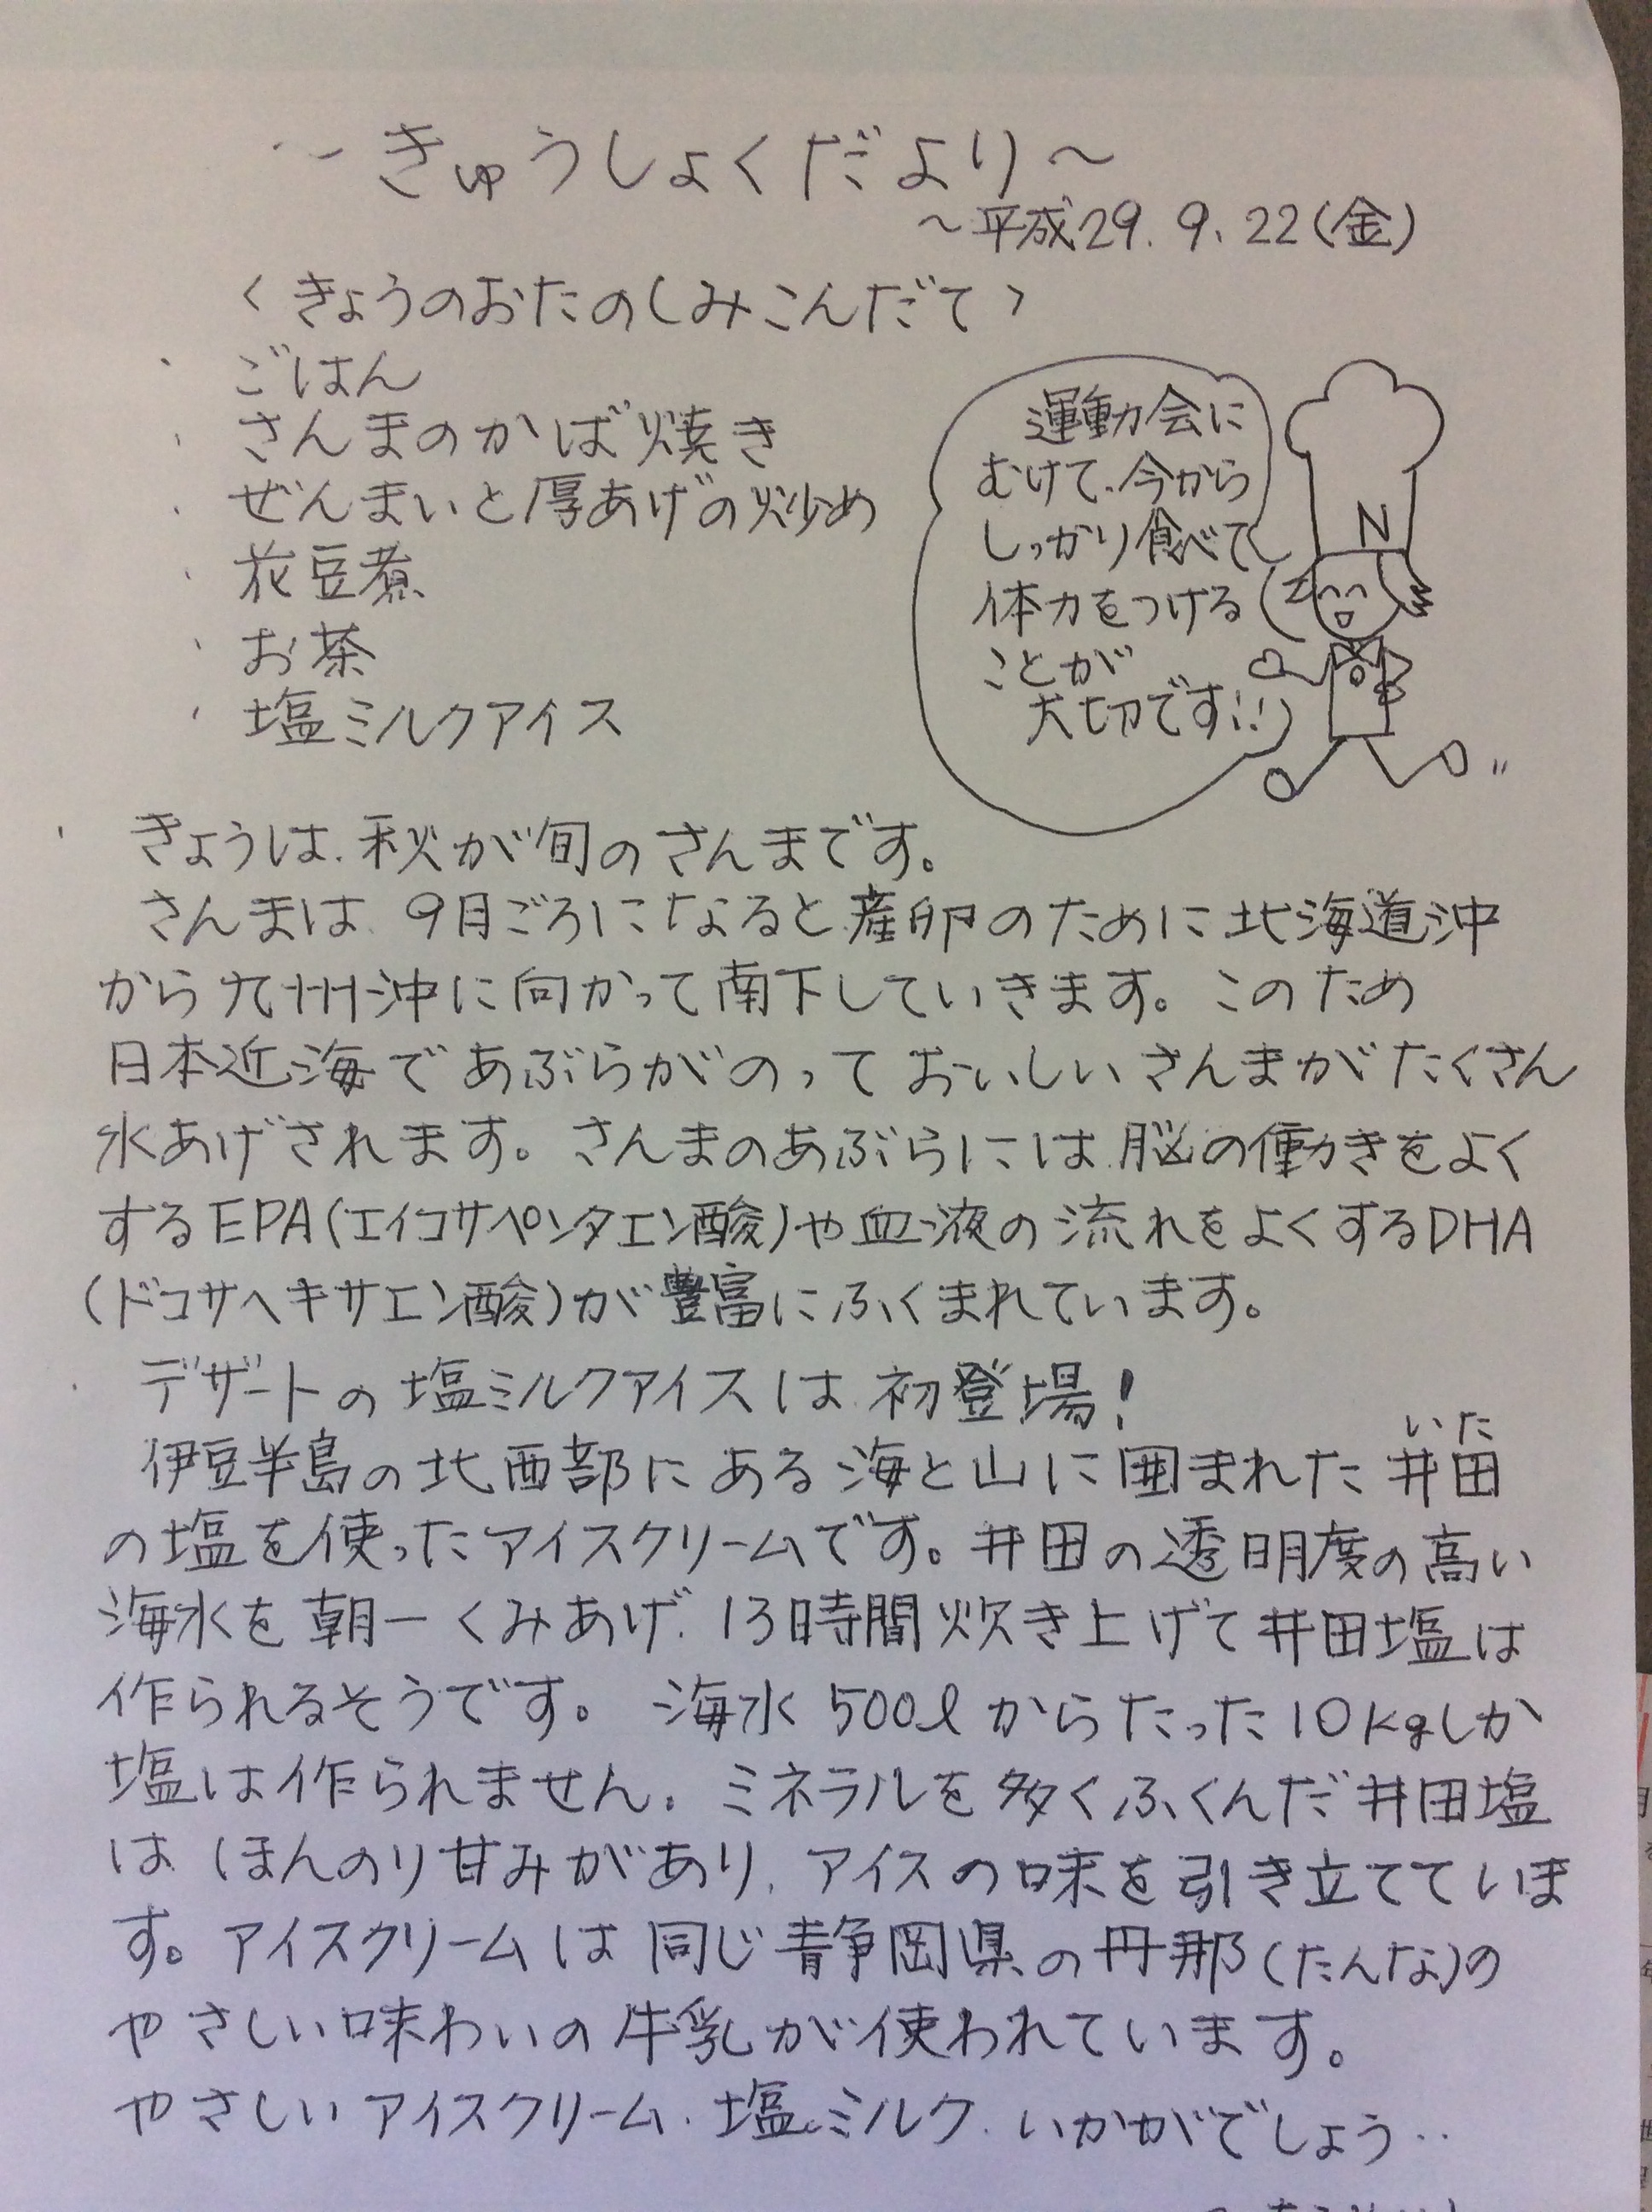 ～きゅうしょくだより～
～平成29.9.22(金)
〈きょうのおたのしみこんだて〉
・ごはん
・さんまのかば焼き
・ぜんまいと厚あげの炒め
・花豆煮
・お茶
・塩ミルクアイス
運動会に
むけて、今から
しっかり食べて
体力をつける
ことが
大切です!!
N
・きょうは、秋が旬のさんまです。
さんまは、9月ごろになると産卵のために北海道沖
から九州沖に向かって南下していきます。このため
日本近海であぶらがのっておいしいさんまがたくさん
水あげされます。さんまのあぶらには、脳の働きをよく
するEPA(エイコサペンタエン酸)や血液の流れをよくするDHA
(ドコサヘキサエン酸)が豊富にふくまれています。
・デザートの塩ミルクアイスは、初登場!
いた
伊豆半島の北西部にある海と山に囲まれた井田
の塩を使ったアイスクリームです。井田の透明度の高い
海水を朝一くみあげ、13時間炊き上げて井田塩は
作られるそうです。海水500ℓからたった10kgしか
塩は作られません。ミネラルを多くふくんだ井田塩
はほんのり甘みがあり、アイスの味を引き立てていま
す。アイスクリームは同じ静岡県の丹那(たんな)の
やさしい味わいの牛乳が使われています。
やさしいアイスクリーム、塩ミルク、いかがでしょう‥